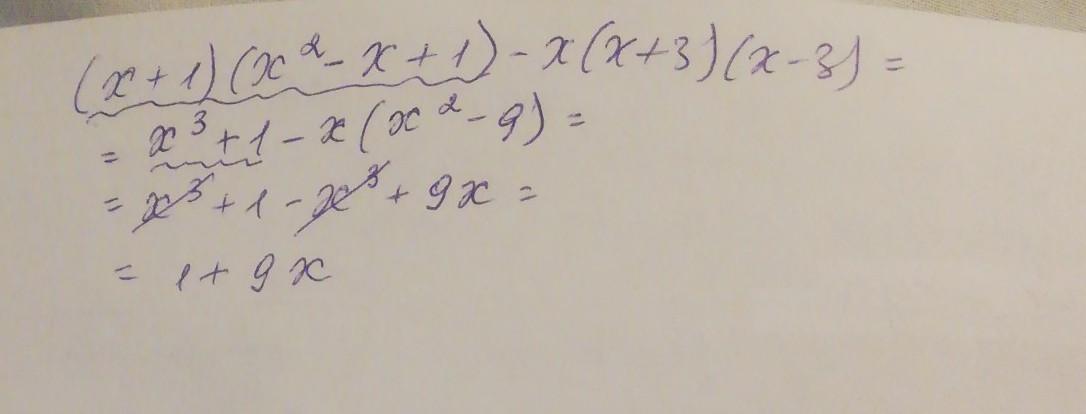 (x+1)(x²-x+1)-x(x+3)(x-3)=
= x³+1-x(x²-9)=
= x³+1-x³+9x=
= 1+9x